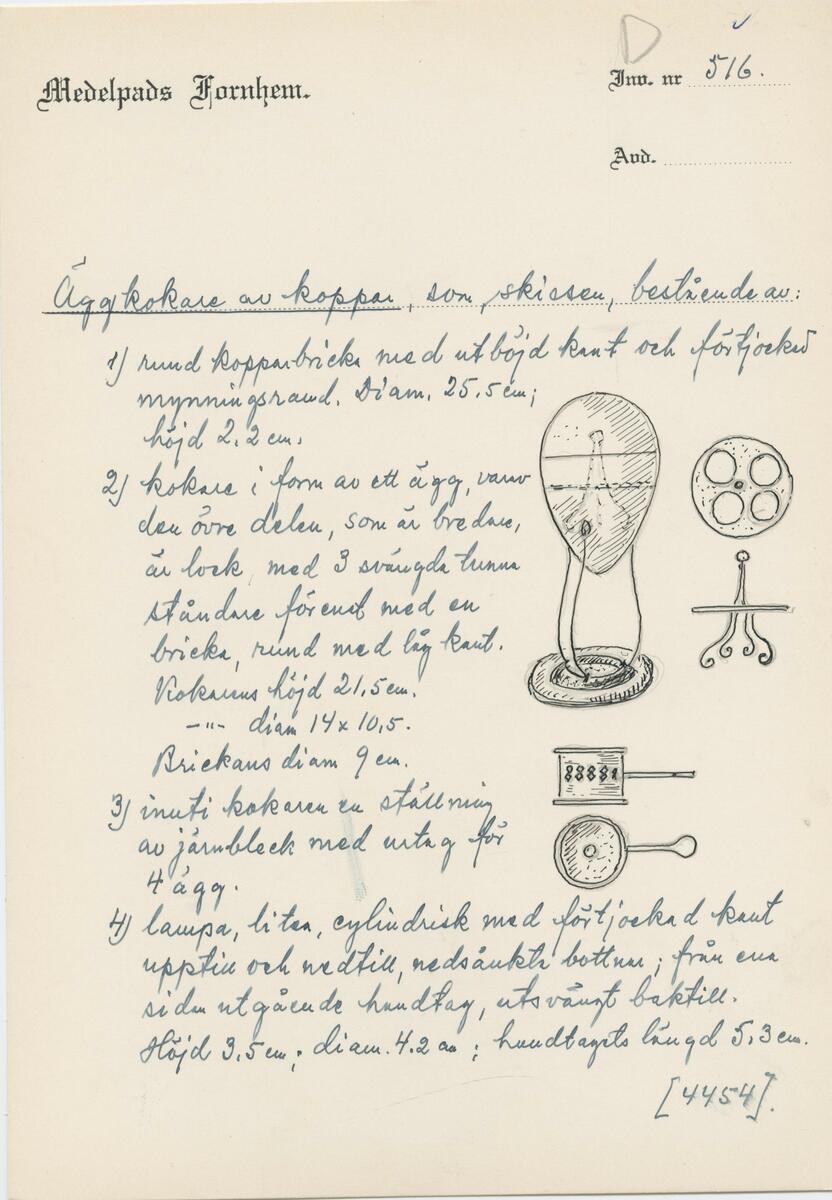 D
Medelpads Fornhem.
Inv. nr 516.
Avd.
Äggkokare av koppar, som skissen, bestående av:
1) rund kopparbricka med utböjd kant och förtjockad
mynningsrand. Diam. 25.5 cm;
höjd 2.2 cm.
2) kokare i form av ett ägg, varav
den övre delen, som är bredare,
är lock, med 3 svängda tunna
ståndare förenat med en
bricka, rund med låg kant.
Kokarens höjd 21,5 cm.
-"- diam 14 x 10,5.
Brickans diam 9 cm.
3) inuti kokaren en ställning
av järnbleck med urtag för
4 ägg.
4) lampa, liten, cylindrisk med förtjockad kant
upptill och nedtill, nedsänkta bottnar; från ena
sidan utgående handtag, utsvängt baktill.
Höjd 3.5 cm; diam. 4.2 cm; handtagets längd 5.3 cm.
[4454].